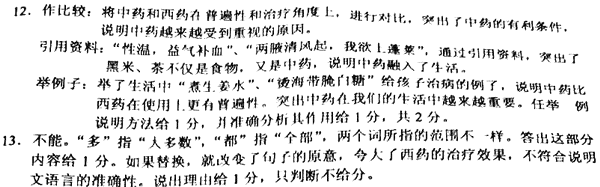 12. 作比较：将中药和西药在普遍性和治疗角度上，进行对比，突出了中药的有利条件，
说明中药越来越受到重视的原因。
引用资料：“性温，益气补血”、“两腋清风起，我欲上蓬莱”，通过引用资料，突出了
黑米、茶不仅是食物，又是中药，说明中药融入了生活。
举例子：举了生活中“煮生姜水”、“烫海带腌白糖”给孩子治病的例子，说明中药比
西药在使用上更有普遍性。突出中药在我们的生活中越来越重要。任举 例
说明方法给1分，并准确分析其作用给1分，共2分。
13. 不能。“多”指“大多数”，“都”指“全部”，两个词所指的范围不一样。答出这部分
内容给1分。如果替换，就改变了句子的原意，夸大了西药的治疗效果，不符合说明
文语言的准确性。说出理由给1分，只判断不给分。